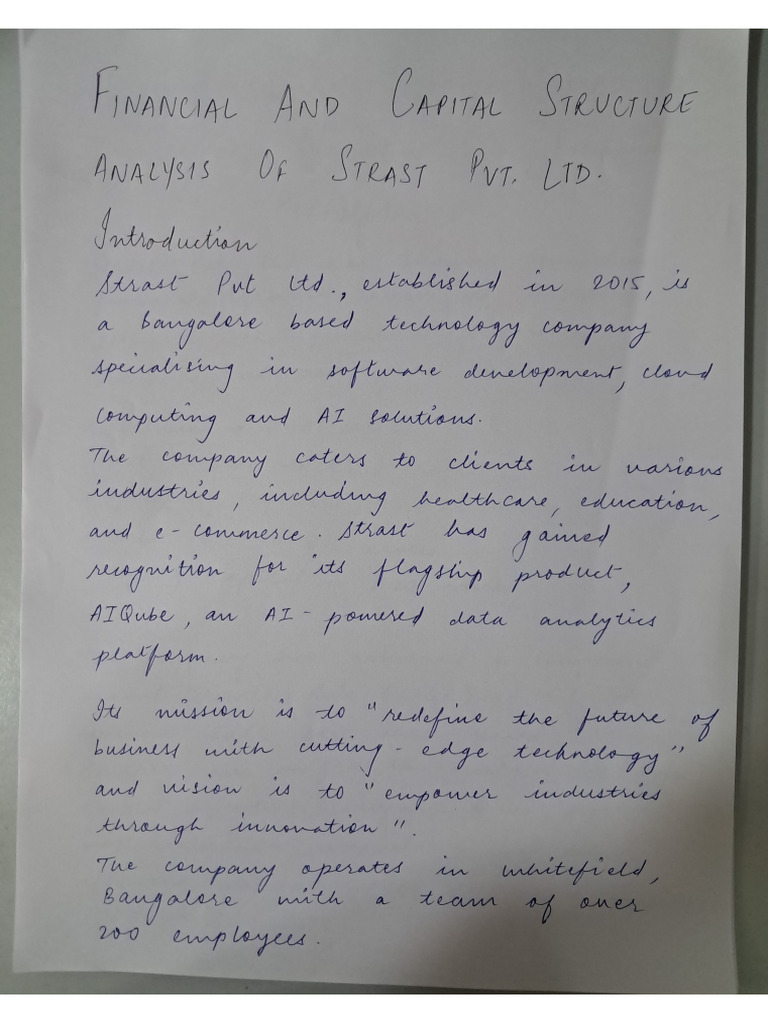 FINANCIAL AND CAPITAL STRUCTURE
ANALYSIS OF STRAST PVT. LTD.
Introduction
Strast Pvt Ltd., established in 2015, is
a Bangalore based technology company
specialising in software development, cloud
computing and AI solutions.
The company caters to clients in various
industries, including healthcare, education,
and e-commerce. Strast has gained
recognition for its flagship product,
AIQube, an AI-powered data analytics
platform.
Its mission is to "redefine the future of
business with cutting-edge technology"
and vision is to "empower industries
through innovation".
The company operates in Whitefield,
Bangalore with a team of over
200 employees.